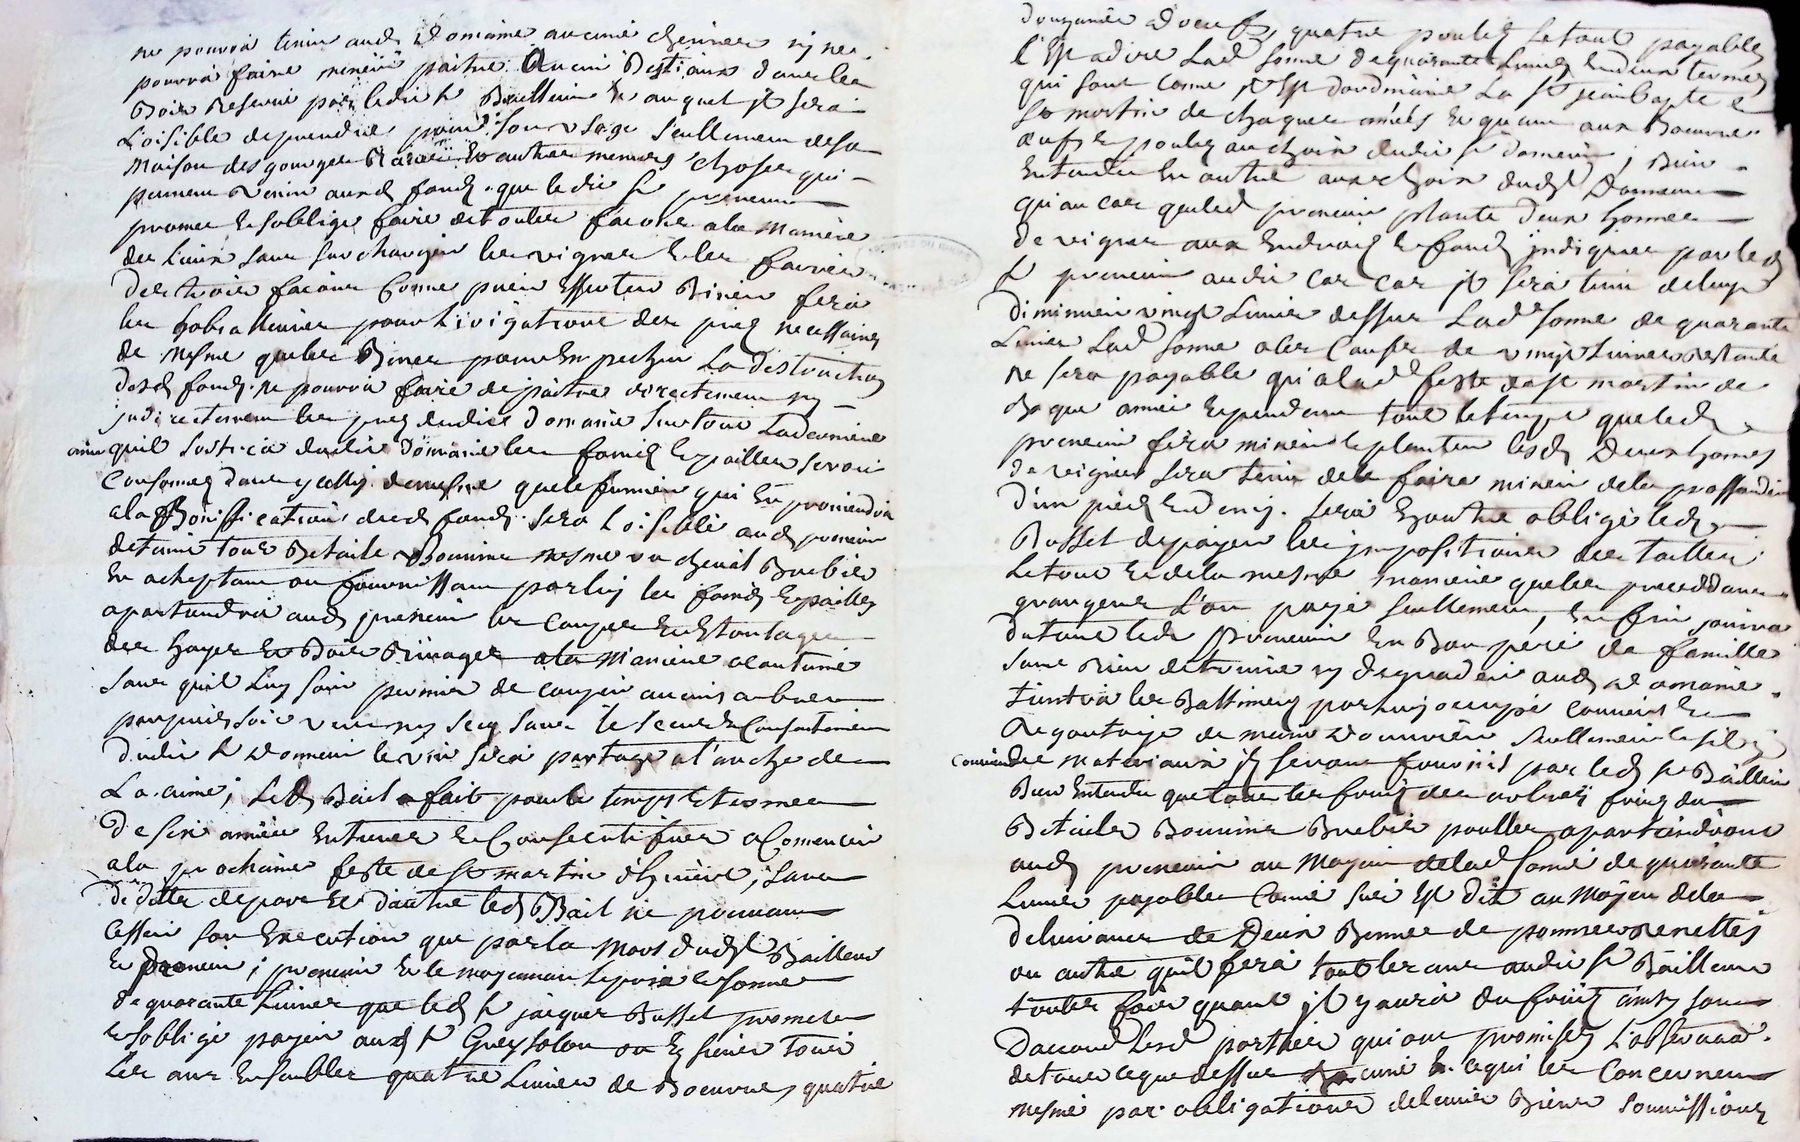 ne pourra tenir aud domaine aucune chevres ny ne
pourra faire mener paitre aucun Bestiaux dans les
Bois Reservé par ledit Sr Bailleur et auquel jl sera
Loisible de prendre pour son usage seullement de sa
Maison des gouges et autres menues choses qui
peuvent venir auxd fonds que ledit Sr preneur
promet et soblige faire de toutes façons a la maniere
des lieux sans surcharger les vignes et les
des trois façons Comme
les pour Livigations des prés necessaires
de mesme que les pour Enpecher La distruction
desd fonds ne pourra faire de paitre directement ny
jndirectement les prés dudit domaine surtout La derniere
année quil sortira dudit domaine les foins et pailles seront
Consomés dans ycelluy de mesme que le fumier qui En proviendra
a la Bonification desd fonds sera Loisible aud preneur
de tenir tous Betails Bouvine mesme un cheval Brebis
En acheptant ou fournissant par luy les foins et pailles
apartiendra aud preneur les coupes et Estoulages
des hayes et Bois Rivages a la Maniere acoutumé
sans quil Luy soit permis de couper aucuns arbres
par pied soit vert ny secq sans le sceu et Consentement
dudit Sr Donneur le vin sera partagé a l'anche de
La cuve ; Led Bail a fait pour le temps et termes
de six années Entieres et Consecutifves a Comencer
a la prochaine feste de St martin d'hiver, sans
deditte de part et d'autre led Bail ne pouvant
Cesser son Execution que par la Mort dudt Bailleur
Et preneur ; preneur Et le moyennant le prix et somme
de quarante Livres que led Sr jacques Busset promet
et soblige payer aud Sr Greysolon ou Es siens tous
Les ans Ensembles quatre Livres de Boeurre, quatre
douzaines d'oeufs, quatre poulets le tout payable
C'Est adire Lad some de quarante Livres En deux termes
qui sont come jl Est dordinaire La St jean Baptiste et
St martin de chaques années Et quant aux Boeurre
oeufs et poulets au choix dudit Sr donneur ; Bien
Entendu En outre aux choix dudt Donneur
qu'au cas queled preneur plante deux homées
de vignes aux Endroits et fonds jndiqués par led
Sr preneur audit cas car jl sera tenu de luy
diminuer vingt Livres dessus Lad somme de quarante
Livres Lad somme a les Causes de vingt Livres restante
ne sera payable qu'a lad feste de St martin de
chaque année Et pendant tout le temps queled
preneur fera miner et planter lesd Deux homées
de vignes sera tenu de le faire miner de la proffondeur
d'un pied Et demy. sera En outre obligé led
Busset de payer les jmpositions des tailles
le tout Et de la mesme maniere que les preceddants
grangers L'on payé seullement, En fin jouira
du tout led Preneur En Bon pere de famille
sans Rien detruire ny degrader aud domaine
tiendra les Battiments par luy occupé couverts Et
Regoutoyé de main d'ouvrier seullement
Convient les materiaux jls seront fournis par led Sr Bailleur
Bien Entendu que tous les fruits des arbres fruits du
Betails Bouvine Brebis poulles apartiendront
aud preneur au Moyen de lad somme de quarante
Livres payables Comme sus Est dit au Moyen de la
delivrance de Deux Bennes de pommes renettes
ou autre qu'il fera tout les ans audit Sr Bailleur
toutes fois quant jl y aura du fruits ainsy sont
D'accord Lesd parties qui ont promises L'observation
de tout ce que dessus chacune En ce qui les Concernent
mesme par obligations de leurs Biens soumissions